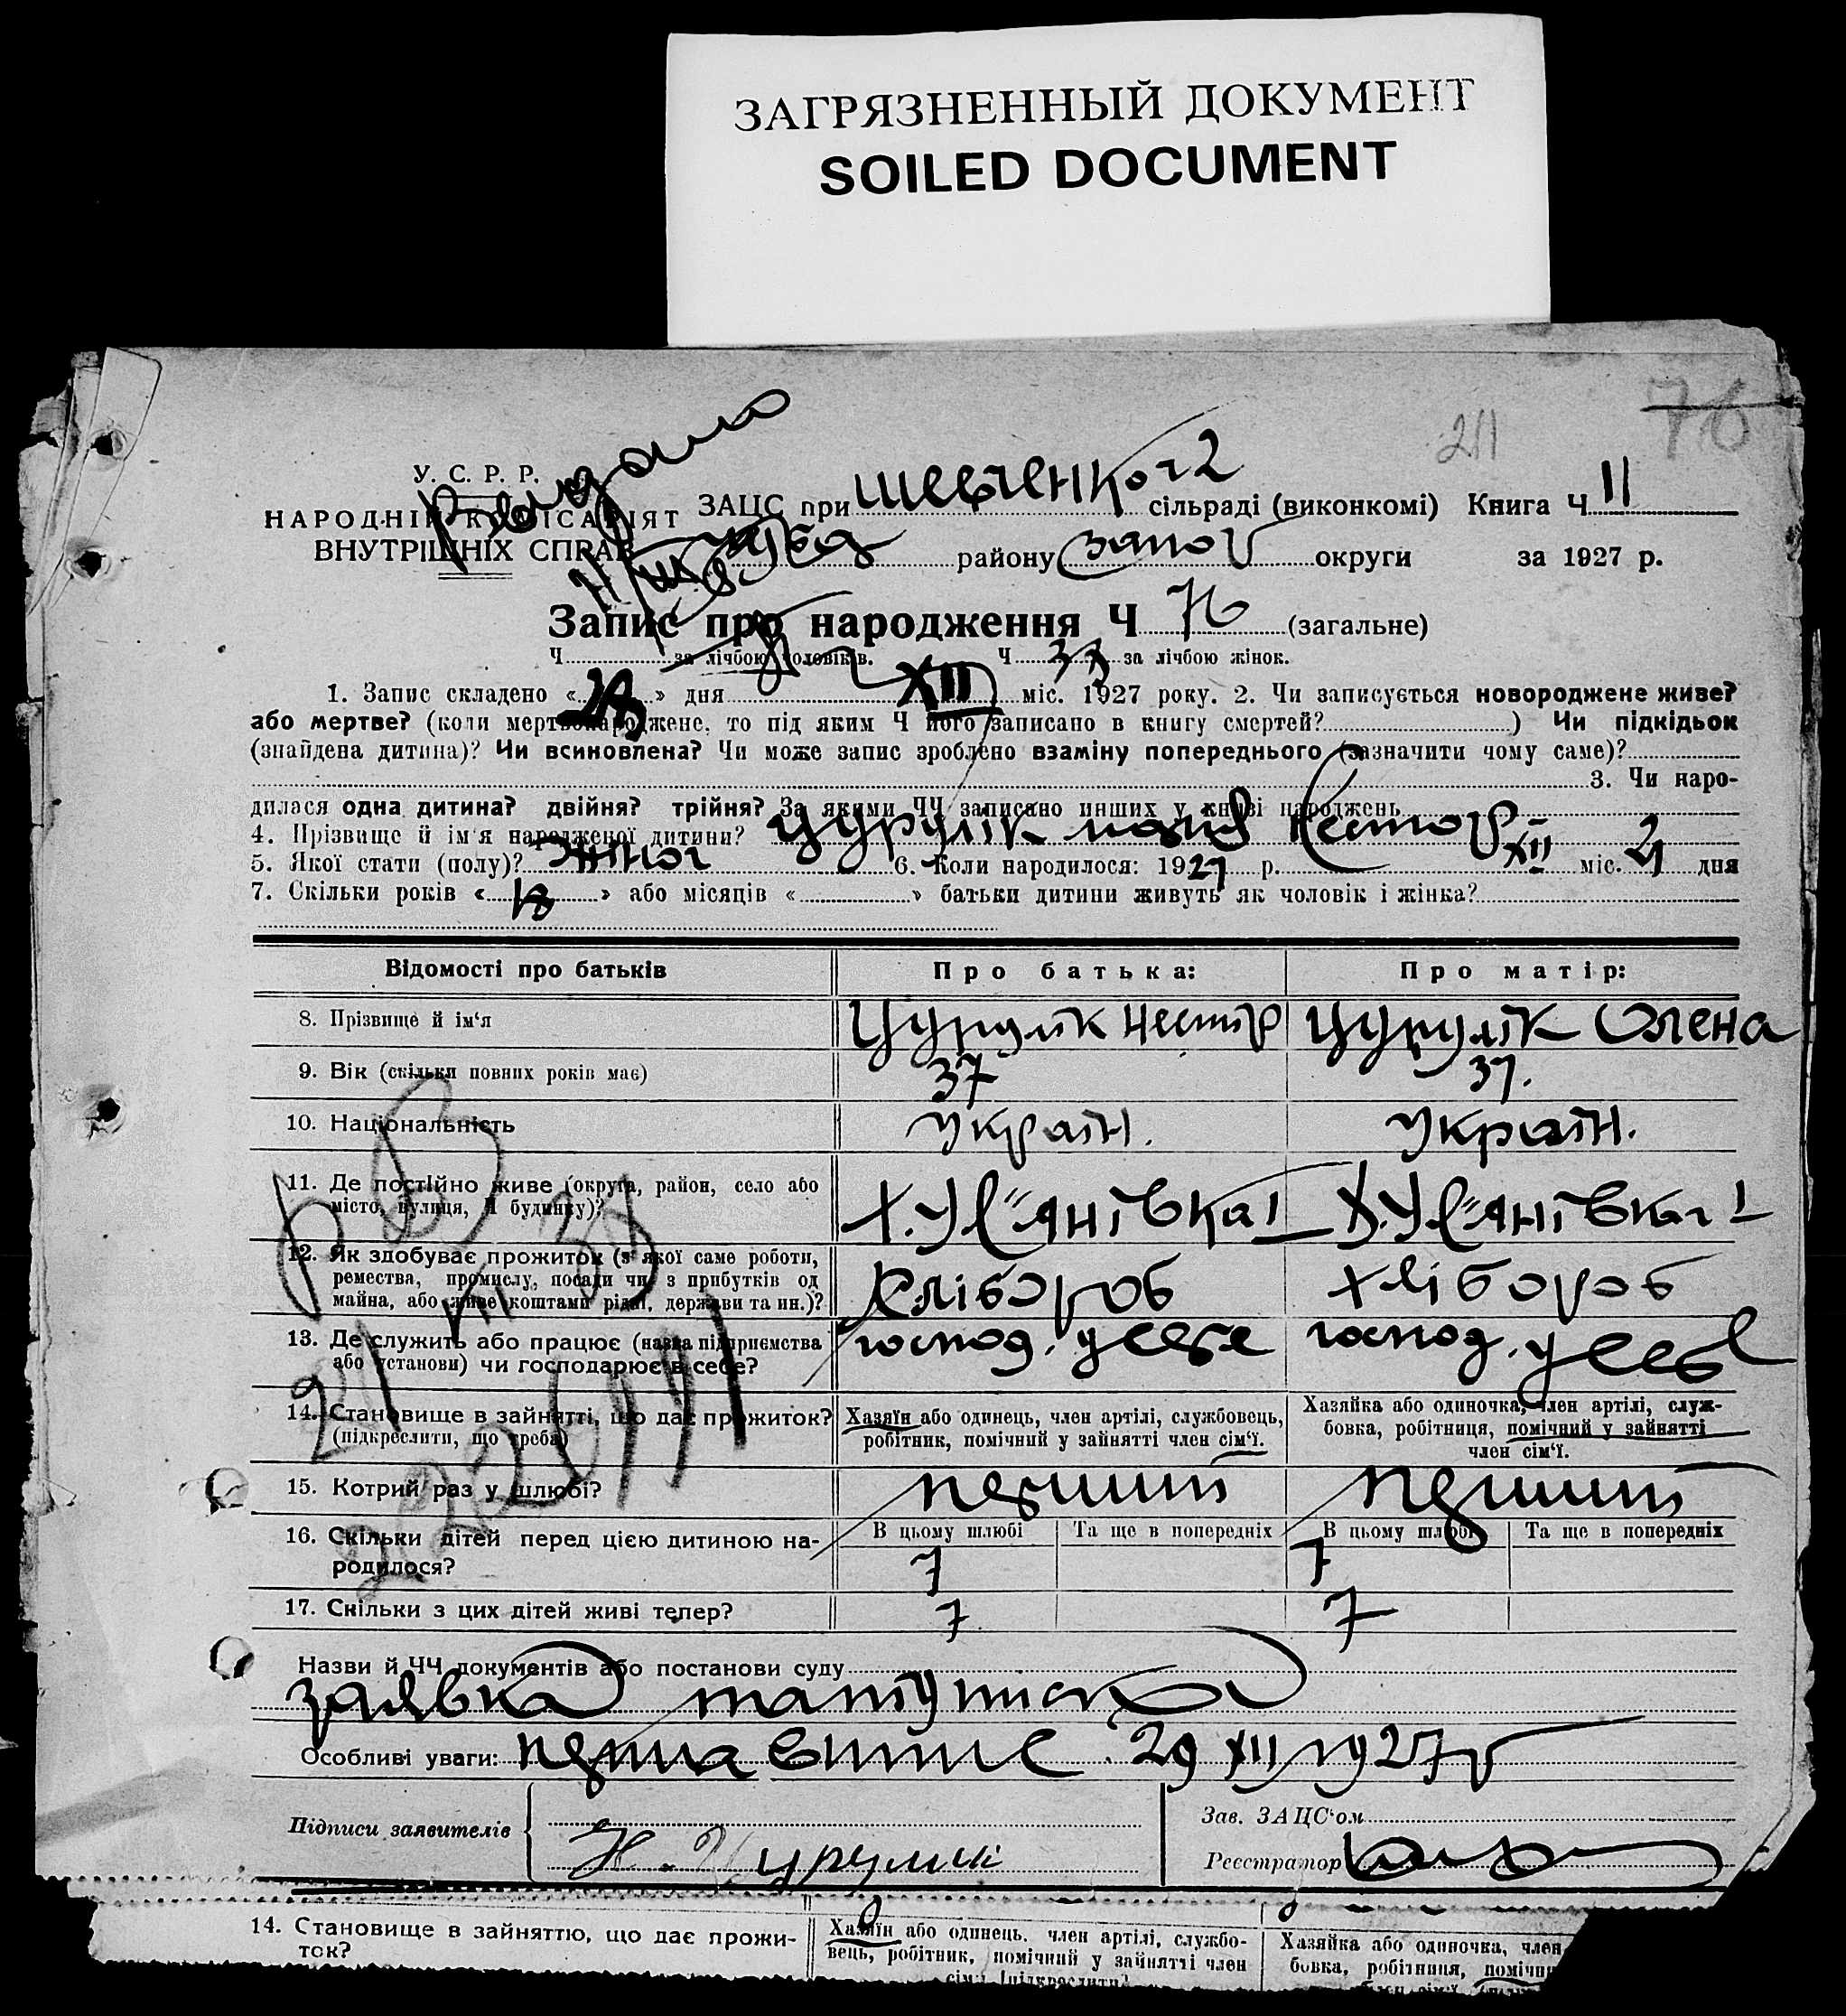 ЗАГРЯЗНЕННЫЙ ДОКУМЕНТ
SOILED DOCUMENT
76
211
У. С. Р. Р.
НАРОДНІЙ КОМІСАРІЯТ
ВНУТРІШНІХ СПРАВ
ЗАЦС при Шевченког2 сільраді (виконкомі) Книга Ч 11
району Запор округи за 1927 р.
Запис про народження Ч 76 (загальне)
Ч за лічбою чоловіків. Ч 33 за лічбою жінок.
1. Запис складено « 29 » дня XII міс. 1927 року. 2. Чи записується новороджене живе?
або мертве? (коли мертвонароджене, то під яким Ч його записано в книгу смертей? ) Чи підкідьок
(знайдена дитина)? Чи всиновлена? Чи може запис зроблено взаміну попереднього (зазначити чому саме)?
3. Чи наро-
дилася одна дитина? двійня? трійня? За якими ЧЧ записано инших у книзі народжень
4. Прізвище й ім'я народженої дитини? Цурулік Нестор
5. Якої стати (полу)? жіноч 6. Коли народилося: 1927 р. XII міс. 21 дня
7. Скільки років « 18 » або місяців « » батьки дитини живуть як чоловік і жінка?
Відомості про батьків Про батька: Про матір:
8. Прізвище й ім'я Цурулік Нестір Цурулік Олена
9. Вік (скільки повних років має) 37 37.
10. Національність Україн. Україн.
11. Де постійно живе (округа, район, село або
місто, вулиця, Ч будинку)? Х. Ул"янівка I Х. Ул"янівка I
12. Як здобуває прожиток (з якої саме роботи,
ремества, промислу, посади чи з прибутків од
майна, або живе коштами рідні, держави та ин.)? Хлібороб хлібороб
13. Де служить або працює (назва підприємства
або установи) чи господарює в себе? господ. у себе господ. у себе
14. Становище в зайнятті, що дає прожиток?
(підкреслити, що треба)
Хазяїн або одинець, член артілі, службовець,
робітник, помічний у зайнятті член сім'ї.
Хазяйка або одиночка, член артілі, служ-
бовка, робітниця, помічний у зайнятті
член сім'ї.
15. Котрий раз у шлюбі? перший перший
16. Скільки дітей перед цією дитиною на-
родилося?
В цьому шлюбі Та ще в попередніх В цьому шлюбі Та ще в попередніх
7 7
17. Скільки з цих дітей живі тепер? 7 7
Назви й ЧЧ документів або постанови суду
заявка
Особливі уваги: 29 XII 1927 р
Підписи заявителів Н. Цурулик
Зав. ЗАЦС'ом
Реєстратор
14. Становище в зайняттю, що дає прожи-
ток?
Хазяїн або одинець, член артілі, службо-
вець, робітник, помічний у зайнятті член
Хазяйка або одиночка, член
бовка, робітниця, помічни